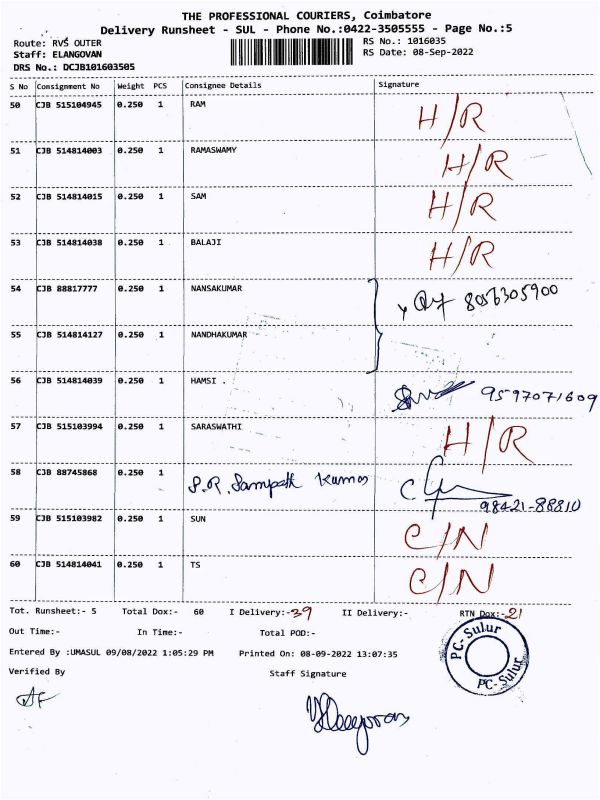 THE PROFESSIONAL COURIERS, Coimbatore
Delivery Runsheet - SUL - Phone No.:0422-3505555 - Page No.:5
Route: RVS OUTER RS No.: 1016035
Staff: ELANGOVAN RS Date: 08-Sep-2022
DRS No.: DCJB101603505
S No Consignment No Weight PCS Consignee Details Signature
50 CJB 515104945 0.250 1 RAM H/R
51 CJB 514814003 0.250 1 RAMASWAMY H/R
52 CJB 514814015 0.250 1 SAM H/R
53 CJB 514814038 0.250 1 BALAJI H/R
54 CJB 88817777 0.250 1 NANSAKUMAR 8056305900
55 CJB 514814127 0.250 1 NANDHAKUMAR
56 CJB 514814039 0.250 1 HAMSI . 9597071609
57 CJB 515103994 0.250 1 SARASWATHI H/R
58 CJB 88745868 0.250 1 S.R. Sampath Kumar 98421-88810
59 CJB 515103982 0.250 1 SUN C/N
60 CJB 514814041 0.250 1 TS C/N
Tot. Runsheet:- 5 Total Dox:- 60 I Delivery:-39 II Delivery:- RTN Dox:-21
Out Time:- In Time:- Total POD:-
Entered By :UMASUL 09/08/2022 1:05:29 PM Printed On: 08-09-2022 13:07:35
Verified By Staff Signature
PC- Sulur
PC- Sulur